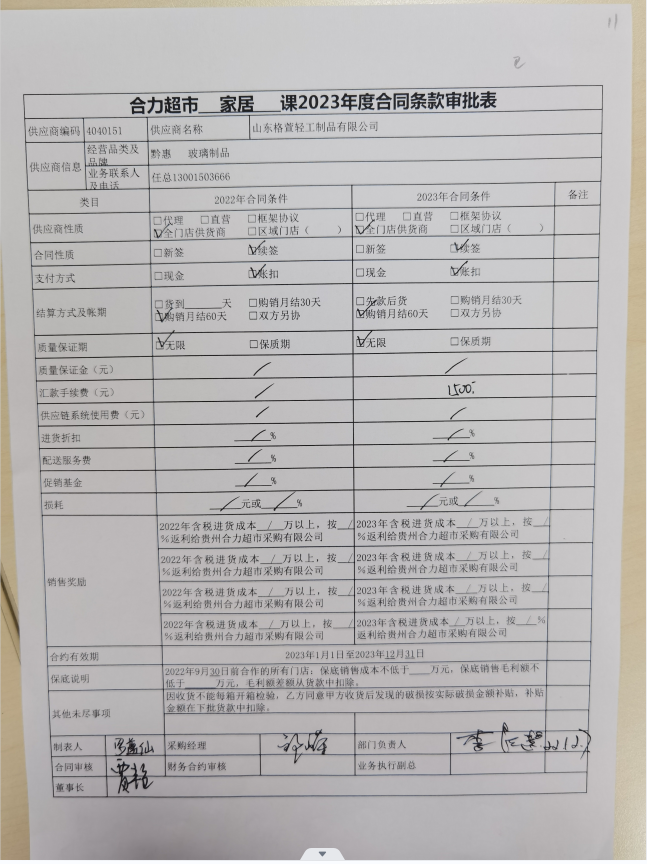 11
合力超市 家居 课2023年度合同条款审批表
供应商编码 4040151 供应商名称 山东格萱轻工制品有限公司
供应商信息 经营品类及品牌 黔惠 玻璃制品
业务联系人及电话 任总13001503666
类目 2022年合同条件 2023年合同条件 备注
供应商性质 □代理 □直营 □框架协议 □代理 □直营 □框架协议
☑全门店供货商 □区域门店（ ） ☑全门店供货商 □区域门店（ ）
合同性质 □新签 ☑续签 □新签 ☑续签
支付方式 □现金 ☑账扣 □现金 ☑账扣
结算方式及帐期 □货到____天 □购销月结30天 □先款后货 □购销月结30天
☑购销月结60天 □双方另协 ☑购销月结60天 □双方另协
质量保证期 ☑无限 □保质期 ☑无限 □保质期
质量保证金（元） / /
汇款手续费（元） / 1500
供应链系统使用费（元） / /
进货折扣 / % / %
配送服务费 / % / %
促销基金 / % / %
损耗 / 元或 / % / 元或 / %
销售奖励 2022年含税进货成本 / 万以上，按 / 2023年含税进货成本 / 万以上，按 /
%返利给贵州合力超市采购有限公司 %返利给贵州合力超市采购有限公司
2022年含税进货成本 / 万以上，按 / 2023年含税进货成本 / 万以上，按 /
%返利给贵州合力超市采购有限公司 %返利给贵州合力超市采购有限公司
2022年含税进货成本 / 万以上，按 / 2023年含税进货成本 / 万以上，按 /
%返利给贵州合力超市采购有限公司 %返利给贵州合力超市采购有限公司
2022年含税进货成本 / 万以上，按 / 2023年含税进货成本 / 万以上，按 / %
%返利给贵州合力超市采购有限公司 返利给贵州合力超市采购有限公司
合约有效期 2023年1月1日至2023年12月31日
保底说明 2022年9月30日前合作的所有门店：保底销售成本不低于____万元，保底销售毛利额不
低于____万元，毛利额差额从货款中扣除。
其他未尽事项 因收货不能每箱开箱检验，乙方同意甲方收货后发现的破损按实际破损金额补贴，补贴
金额在下批货款中扣除。
制表人 采购经理 部门负责人 李
合同审核 财务合约审核 业务执行副总
董事长